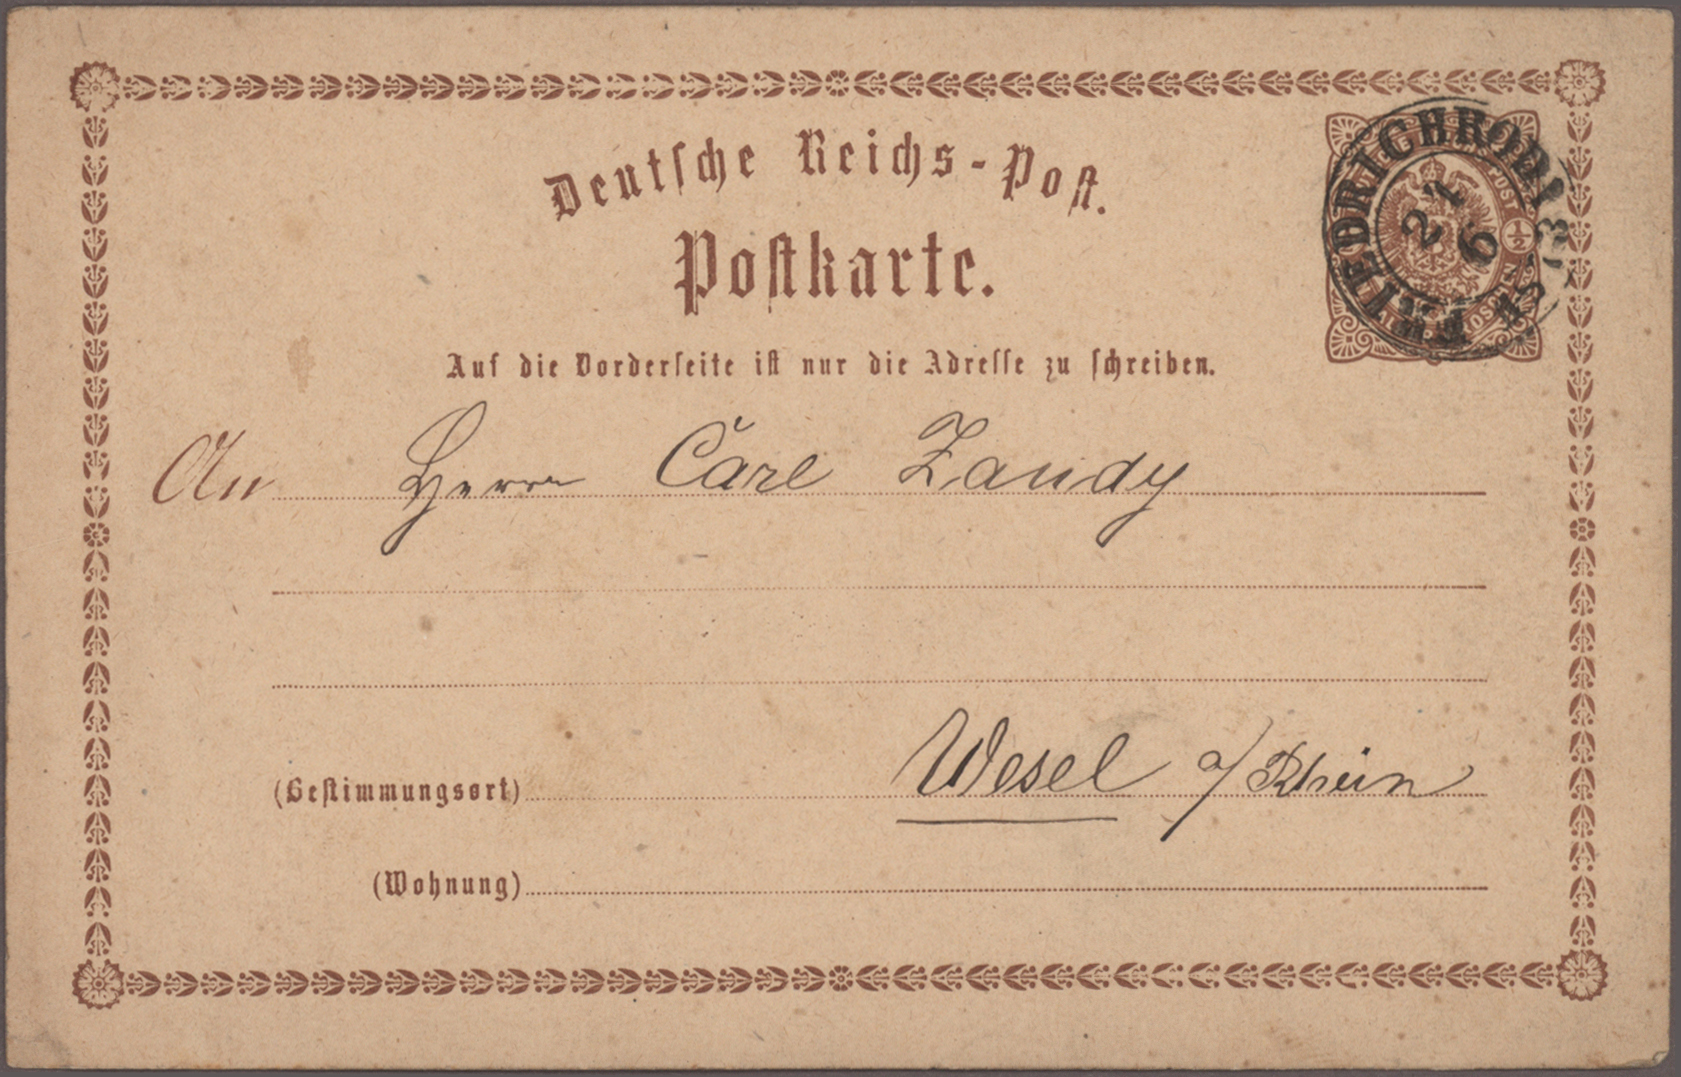 Deutsche Reichs-Post.
Postkarte.
Auf die Vorderseite ist nur die Adresse zu schreiben.
FRIEDRICHRODA
21
6
½
An Herrn Carl Zandy
Wesel a/Rhein
(Bestimmungsort)
(Wohnung)